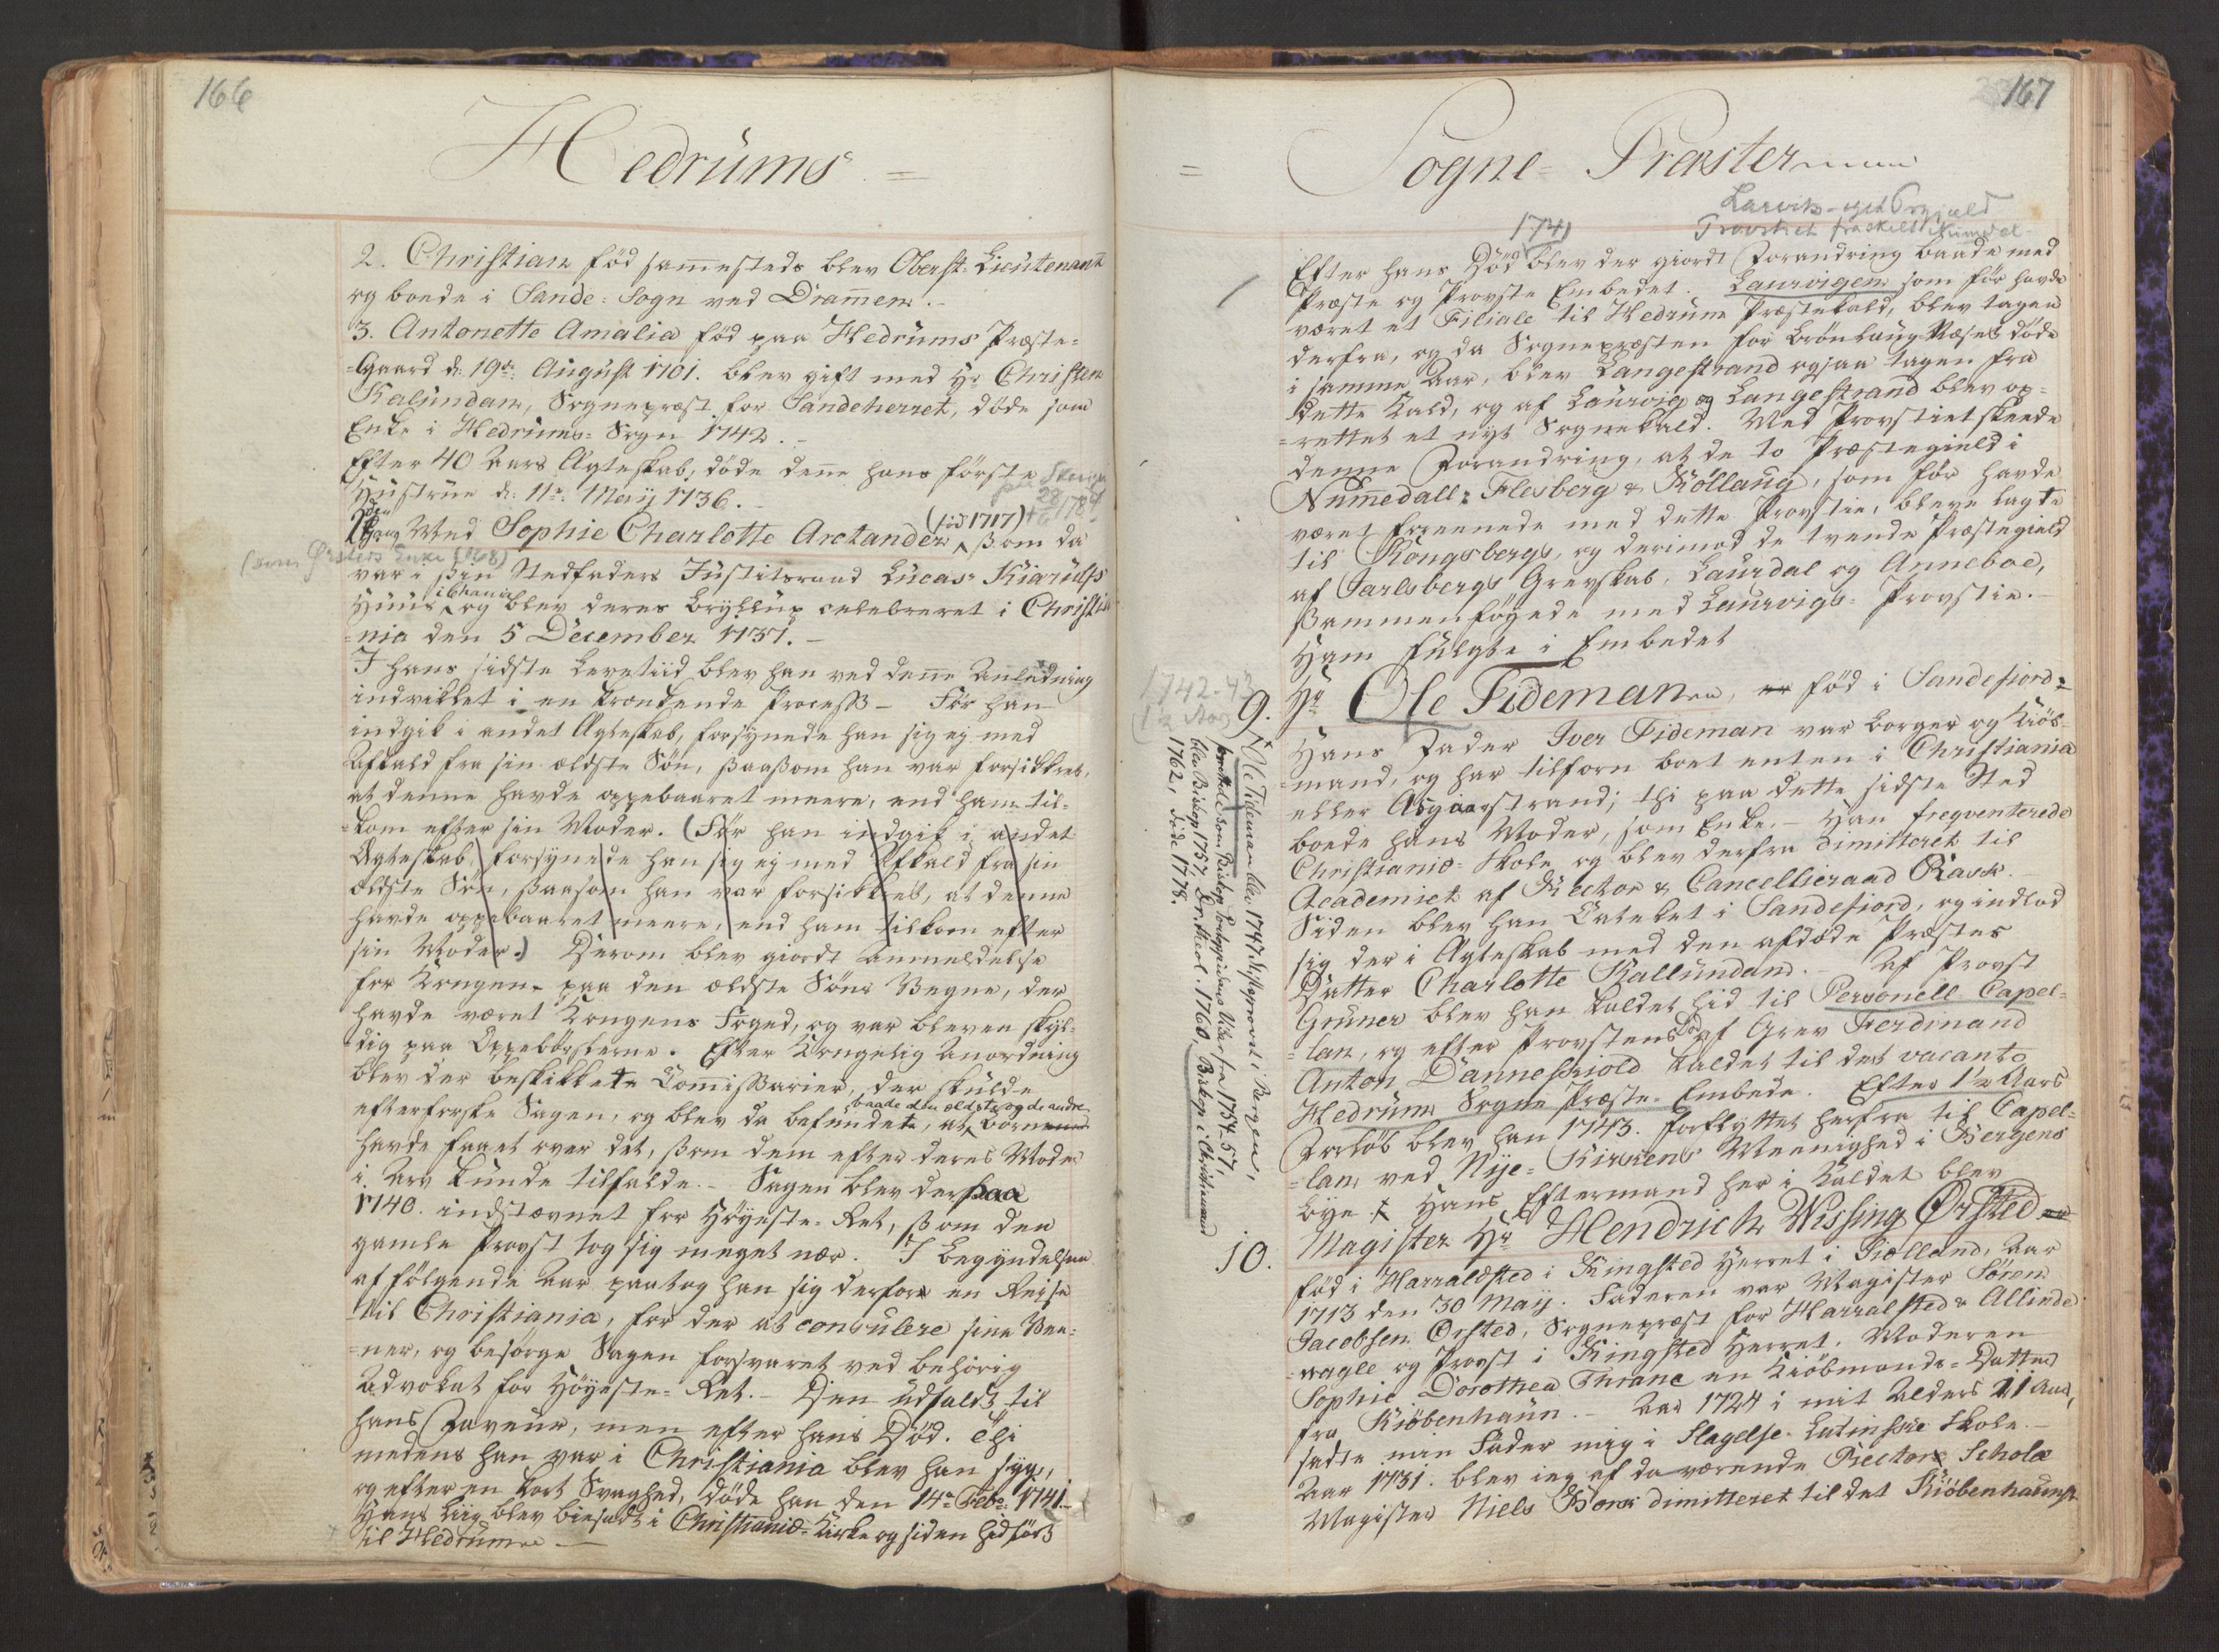 166
Hedrüms =
2. Christian född sam̄esteds blev Oberst-Lieutenant
og boede i Sande-Sogn ved Dram̄en. -
3. Antonette Amalia föd paa Hedrüms Præste-
=Gaard d: 19de August 1701. blev gift med Hr Christen
Kalündan, Sognepræst for Sandeherret, döde som
Enke i Hedrüms-Sogn 1742. -
Efter 40 Aars Ægteskab, döde den̄e hans förste
Hüstrüe d: 11te Maij 1736. -
2den Gang Med Sophie Charlotte Arctander (föd 1717) som da
(som Ørsteds Enke (1768)
var i sin Stedfaders Jüstitsraad Lücas Kiarülfs
Hüüs i Chania og blev deres Bryllüp celebreret i Christia
=nia den 5 December 1737. -
I hans sidste Levetiid blev han ved den̄e Anledning
indviklet i en krænkende Process - Før han
indgik i andet Ægteskab, forsynede han sig ej med
Afkald fra sin ældste Sön, saasom han var forsikkret,
at denne havde oppebaaret meere, end ham til-
=kom efter sin Moder. (Før han indgik i andet
Ægteskab, forsynede han sig ej med Afkald fra sin
ældste Sön, saasom han var forsikkret, at denne
havde oppebaaret meere, end ham tilkom efter
sin Moder.) Derom blev giordt Anmeldelse
for Kongen paa den ældste Söns Vegne, der
havde været Kongens Foged, og var bleven skyl-
dig paa Oppebörsterne. Efter Kongelig Anordning
blev der beskikkete Com̄issarier, der skülde
efterforske Sagen, og blev da befündet, at baade den ældste og de andre Börn
havde faaet over det, som dem efter deres Moder
i Arv kunde tilfalde. - Sagen blev derpaa
1740. indstævnet for Höyeste-Ret, som den
gamle Provst tog sig meget nær. I Begyndelsen
af fölgende Aar paatog han sig derfor en Reise
til Christiania, for der at consulere sine Ven-
=ner, og besörge Sagen forsvaret ved behörig
Advokat for Höyeste-Ret. - Den udfaldt til
hans Faveur, men efter hans Död. Thi
medens han var i Christiania blev han syg,
og efter en kort Svaghed, döde han den 14de Febr: 1741.
Hans Liig blev biesadt i Christianiæ-Kirke og siden hidfört
til Hedrüm
167
= Sogne-Præster
Larvik - eget Prgjæld
Provstiet fraskilt Numedal
1741
Efter hans Död blev der giordt Forandring baade med
Præste og Provste Embedet. Laurvigen som för havde
været et Filiale til Hedrüm Præstekald, blev tagen
derfra, og da Sognepræsten for Brönlaug Næsset döde
i samme Aar, blev Langestrand ogsaa tagen fra
dette Kald, og af Laurvig og Langestrand blev op-
=rettet et nyt Sognekald. Med Provstiet skeede
denne Forandring, at de to Præstegield i
Nüm̄edall: Flesberg & Rollaug, som för havde
været foreenede med dette Provstie, bleve lagte
til Kongsberg, og derimod de tvende Præstegield
af Jarlsbergs Grevskab, Laurdal og Anneboe,
sammenföyede med Laurvigs-Provstie. -
Ham fulgte i Embedet
1742-43
9. Hr Ole Tideman, föd i Sandefiord.
Hans Fader Iver Tideman var Borger og Kiöb-
=mand, og har tilforn boet enten i Christiania
eller Asgaarstrand; thi paa dette sidste Sted
boede hans Moder, som Enke. - Han freqventerede
Christianiæ-Skole og blev derfra dimitteret til
Academiet af Rector & Cancellieraad Rask.
Siden blev han Catechet i Sandefiord, og indlod
sig der i Ægteskab med den afdöde Præstes
Datter Charlotte Kallündand. - Af Provst
Grüner blev han kaldet hid til Personell Capel-
=lan, og efter Provstens Död af Grev Ferdinand
Anton Danneskiold kaldet til det vacante
Hedrüm Sogne Præste-Embede. Efter 1½ Aars
Forlöb blev han 1743. forflyttet herfra til Capel-
=lan ved Nije-Kirkens Meenighed i Bergens
Bye. x Hans Eftermand her i Kaldet blev
x Ole Tideman blev 1747 Stiftsprovst i Bergen,
som Biskop Pontoppidans Vikar fra 1754-57,
blev Biskop 1757, Dr. theol. 1760, Biskop i Christiansand
1762, døde 1778.
10. Magister Hr Hendrich Wissing Ørsted
föd i Harraldsted i Ringsted Herret i Siælland, Aar
1713 den 30 Maij. Faderen var Magister Sören
Jacobsen Örsted, Sognepræst for Harralsted & Allinde
=magle og Provst i Ringsted Herret. Moderen
Sophie Dorothea Thrane en Kiöbmands-Datter
fra Kiöbenhaün. - Aar 1724 i mit Alders 11 Aar,
sadte min Fader mig i Slagelse Latinske Skole. -
Aar 1731. blev ieg af daværende Rector Scholæ
Magister Niels Borse dimitteret til det Kiöbenhaunsk